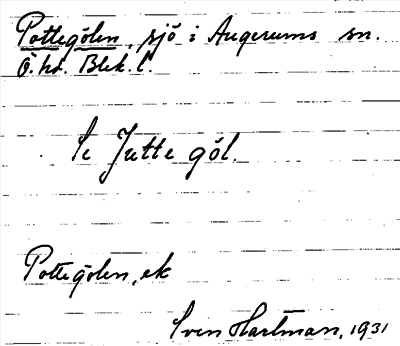 Pottegölen, sjö i Augerums sn.
Ö. hd. Blek. l.
Se Jutte göl.
Pottegölen, ek
Sven Hartman, 1931